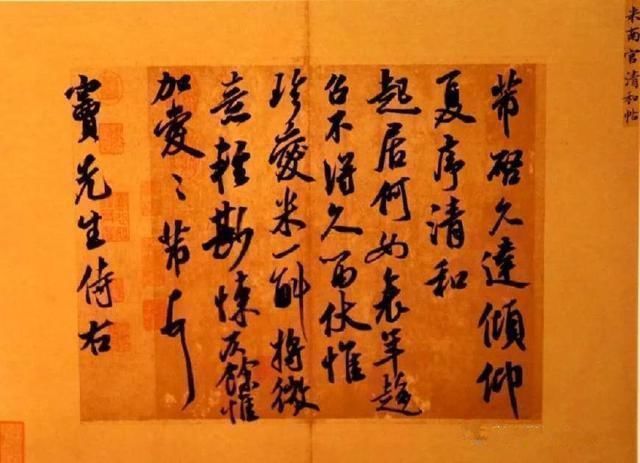 米南宮清和帖
芾啓久違傾仰
夏序清和
起居何如衰年趨
召不得久留伏惟
珍愛米一斛將微
意輕尠悚仄餘惟
加愛〻芾頓首
竇先生侍右